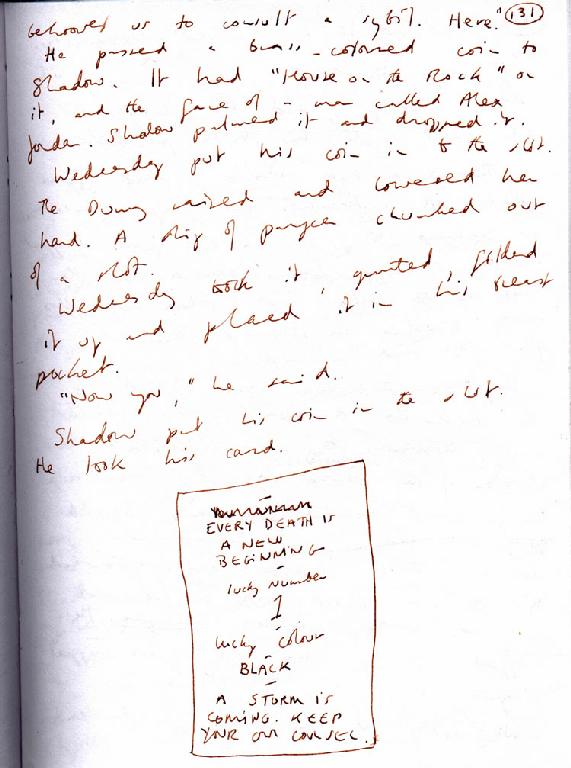 behooves us to consult a sybil. Here." 131
He passed a brass-coloured coin to
Shadow. It had "House on the Rock" on
it, and the face of a man called Alex
Jordan. Shadow palmed it and dropped it.
Wednesday put his coin in to the slot.
The Dummy raised and lowered her
hand. A slip of paper chunked out
of a slot.
Wednesday took it, grunted, folded
it up and placed it in his breast
pocket.
"Now you," he said.
Shadow put his coin in the slot.
He took his card.
EVERY DEATH IS
A NEW
BEGINNING
-
lucky number
1
-
lucky colour
-
BLACK
-
A STORM IS
COMING. KEEP
YOUR OWN COUNSEL.